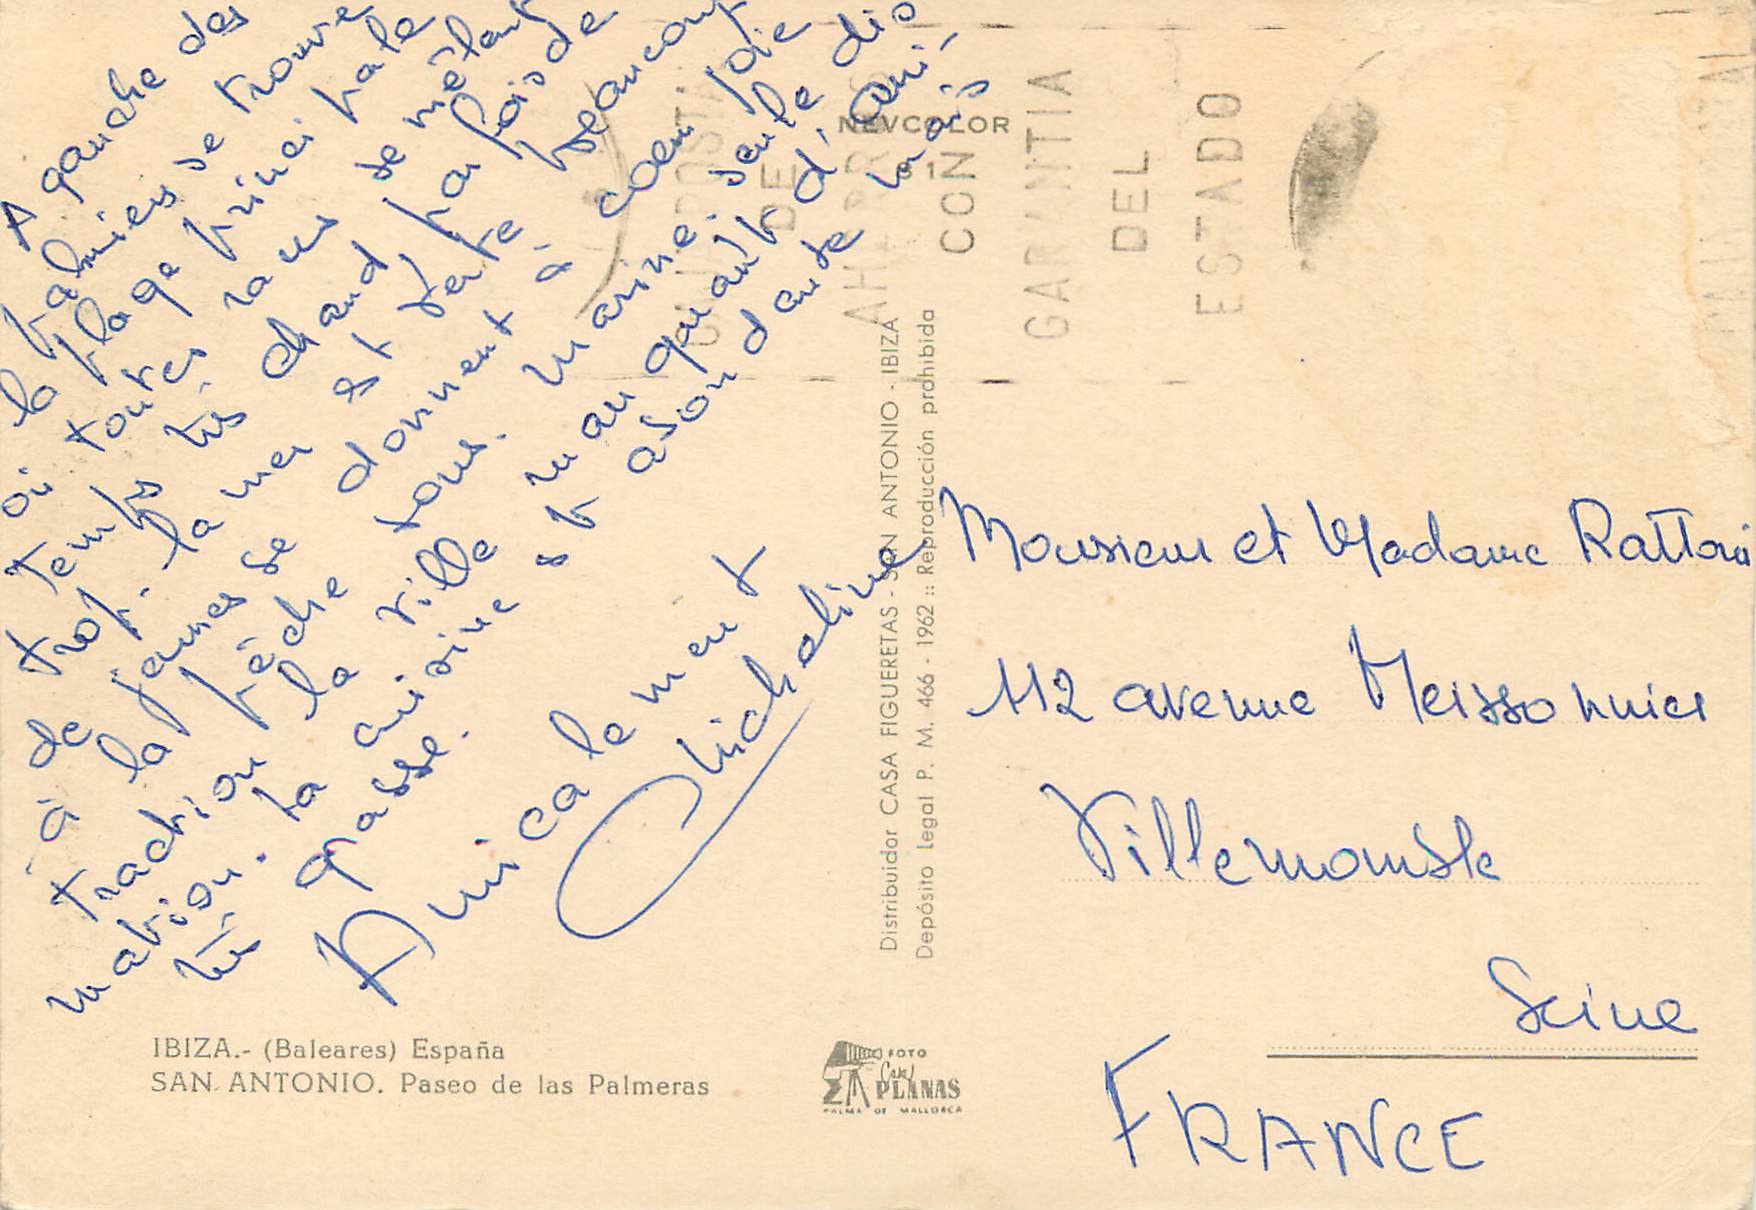 A gauche des
palmiers se trouve
la plage principale
où toutes races se mélent
temps très chaud, parfois de
trop. la mer est verte beaucoup
de jeunes se donnent à coeur joie
à la pêche sous-marine. seule dis
traction la ville manquant d'ani-
mation. la cuisine est abondante mais
très grasse.
Amicalement
Micheline
NEVCOLOR
CAJA POSTAL
DE
AHORROS
CON
GARANTIA
DEL
ESTADO
Distribuidor CASA FIGUERETAS - SAN ANTONIO - IBIZA
Depósito Legal P. M. 466 - 1962 :: Reproducción prohibida
Monsieur et Madame
112 avenue Meissonnier
Villemomble
Seine
FRANCE
IBIZA.- (Baleares) España
SAN ANTONIO. Paseo de las Palmeras
FOTO
Casa
PLANAS
PALMA OF MALLORCA